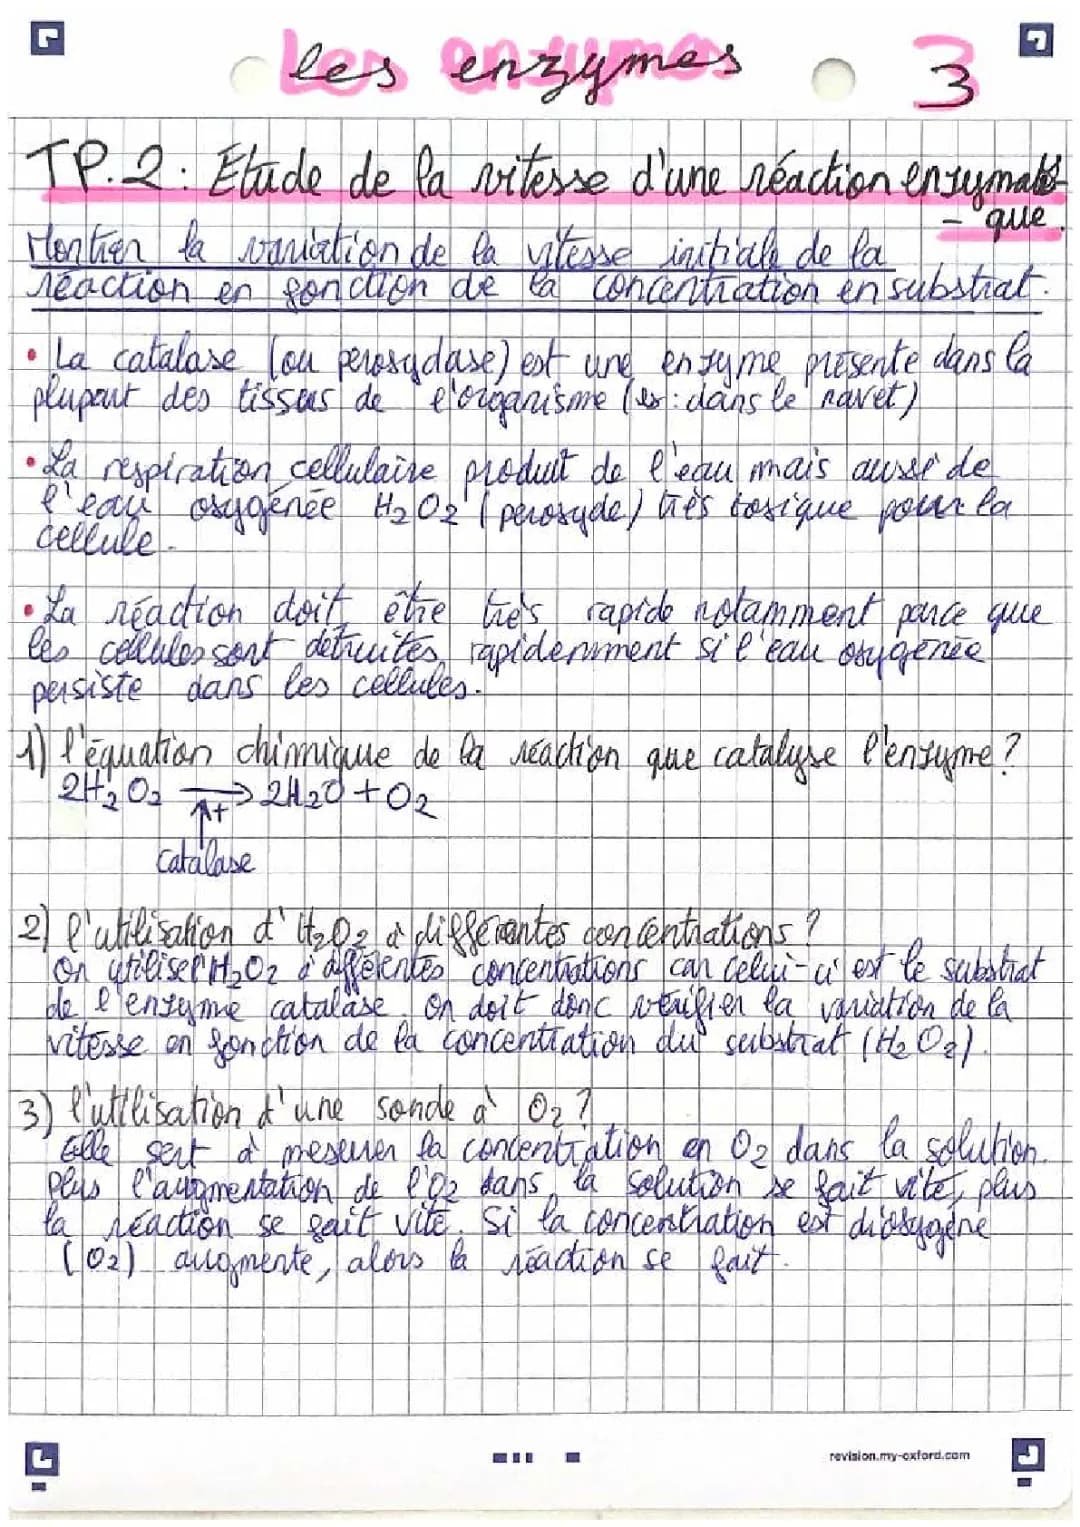 les enzymes 3
TP.2: Etude de la vitesse d'une réaction enzymati-
- que.
Montrer la variation de la vitesse initiale de la
réaction en fonction de la concentration en substrat.
• La catalase (ou peroxydase) est une enzyme présente dans la
plupart des tissus de l'organisme (ex: dans le navet)
• La respiration cellulaire produit de l'eau mais aussi de
l'eau oxygénée H2O2 (peroxyde) très toxique pour la
cellule.
• La réaction doit être très rapide notamment parce que
les cellules sont détruites rapidemment si l'eau oxygénée
persiste dans les cellules.
1) l'équation chimique de la réaction que catalyse l'enzyme?
2H2O2 → 2H2O + O2
↑+
Catalase
2) l'utilisation d'H2O2 à différentes concentrations?
On utilise l'H2O2 à différentes concentrations car celui-ci est le substrat
de l'enzyme catalase. On doit donc vérifier la variation de la
vitesse en fonction de la concentration du substrat (H2O2).
3) l'utilisation d'une sonde à O2?
Elle sert à mesurer la concentration en O2 dans la solution.
Plus l'augmentation de l'O2 dans la solution se fait vite, plus
la réaction se fait vite. Si la concentration est dioxygène
(O2) augmente, alors la réaction se fait.
revision.my-oxford.com